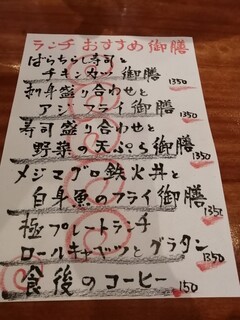 ランチ おすすめ 御膳
ばらちらし寿司と
チキンカツ 御膳
1350
刺身盛り合わせと
アジ フライ 御膳
1350
寿司盛り合わせと
野菜の天ぷら 御膳
1350
メジマグロ鉄火丼と
白身魚のフライ御膳
1350
極プレートランチ
ロールキャベツとグラタン
1350
食後のコーヒー
150